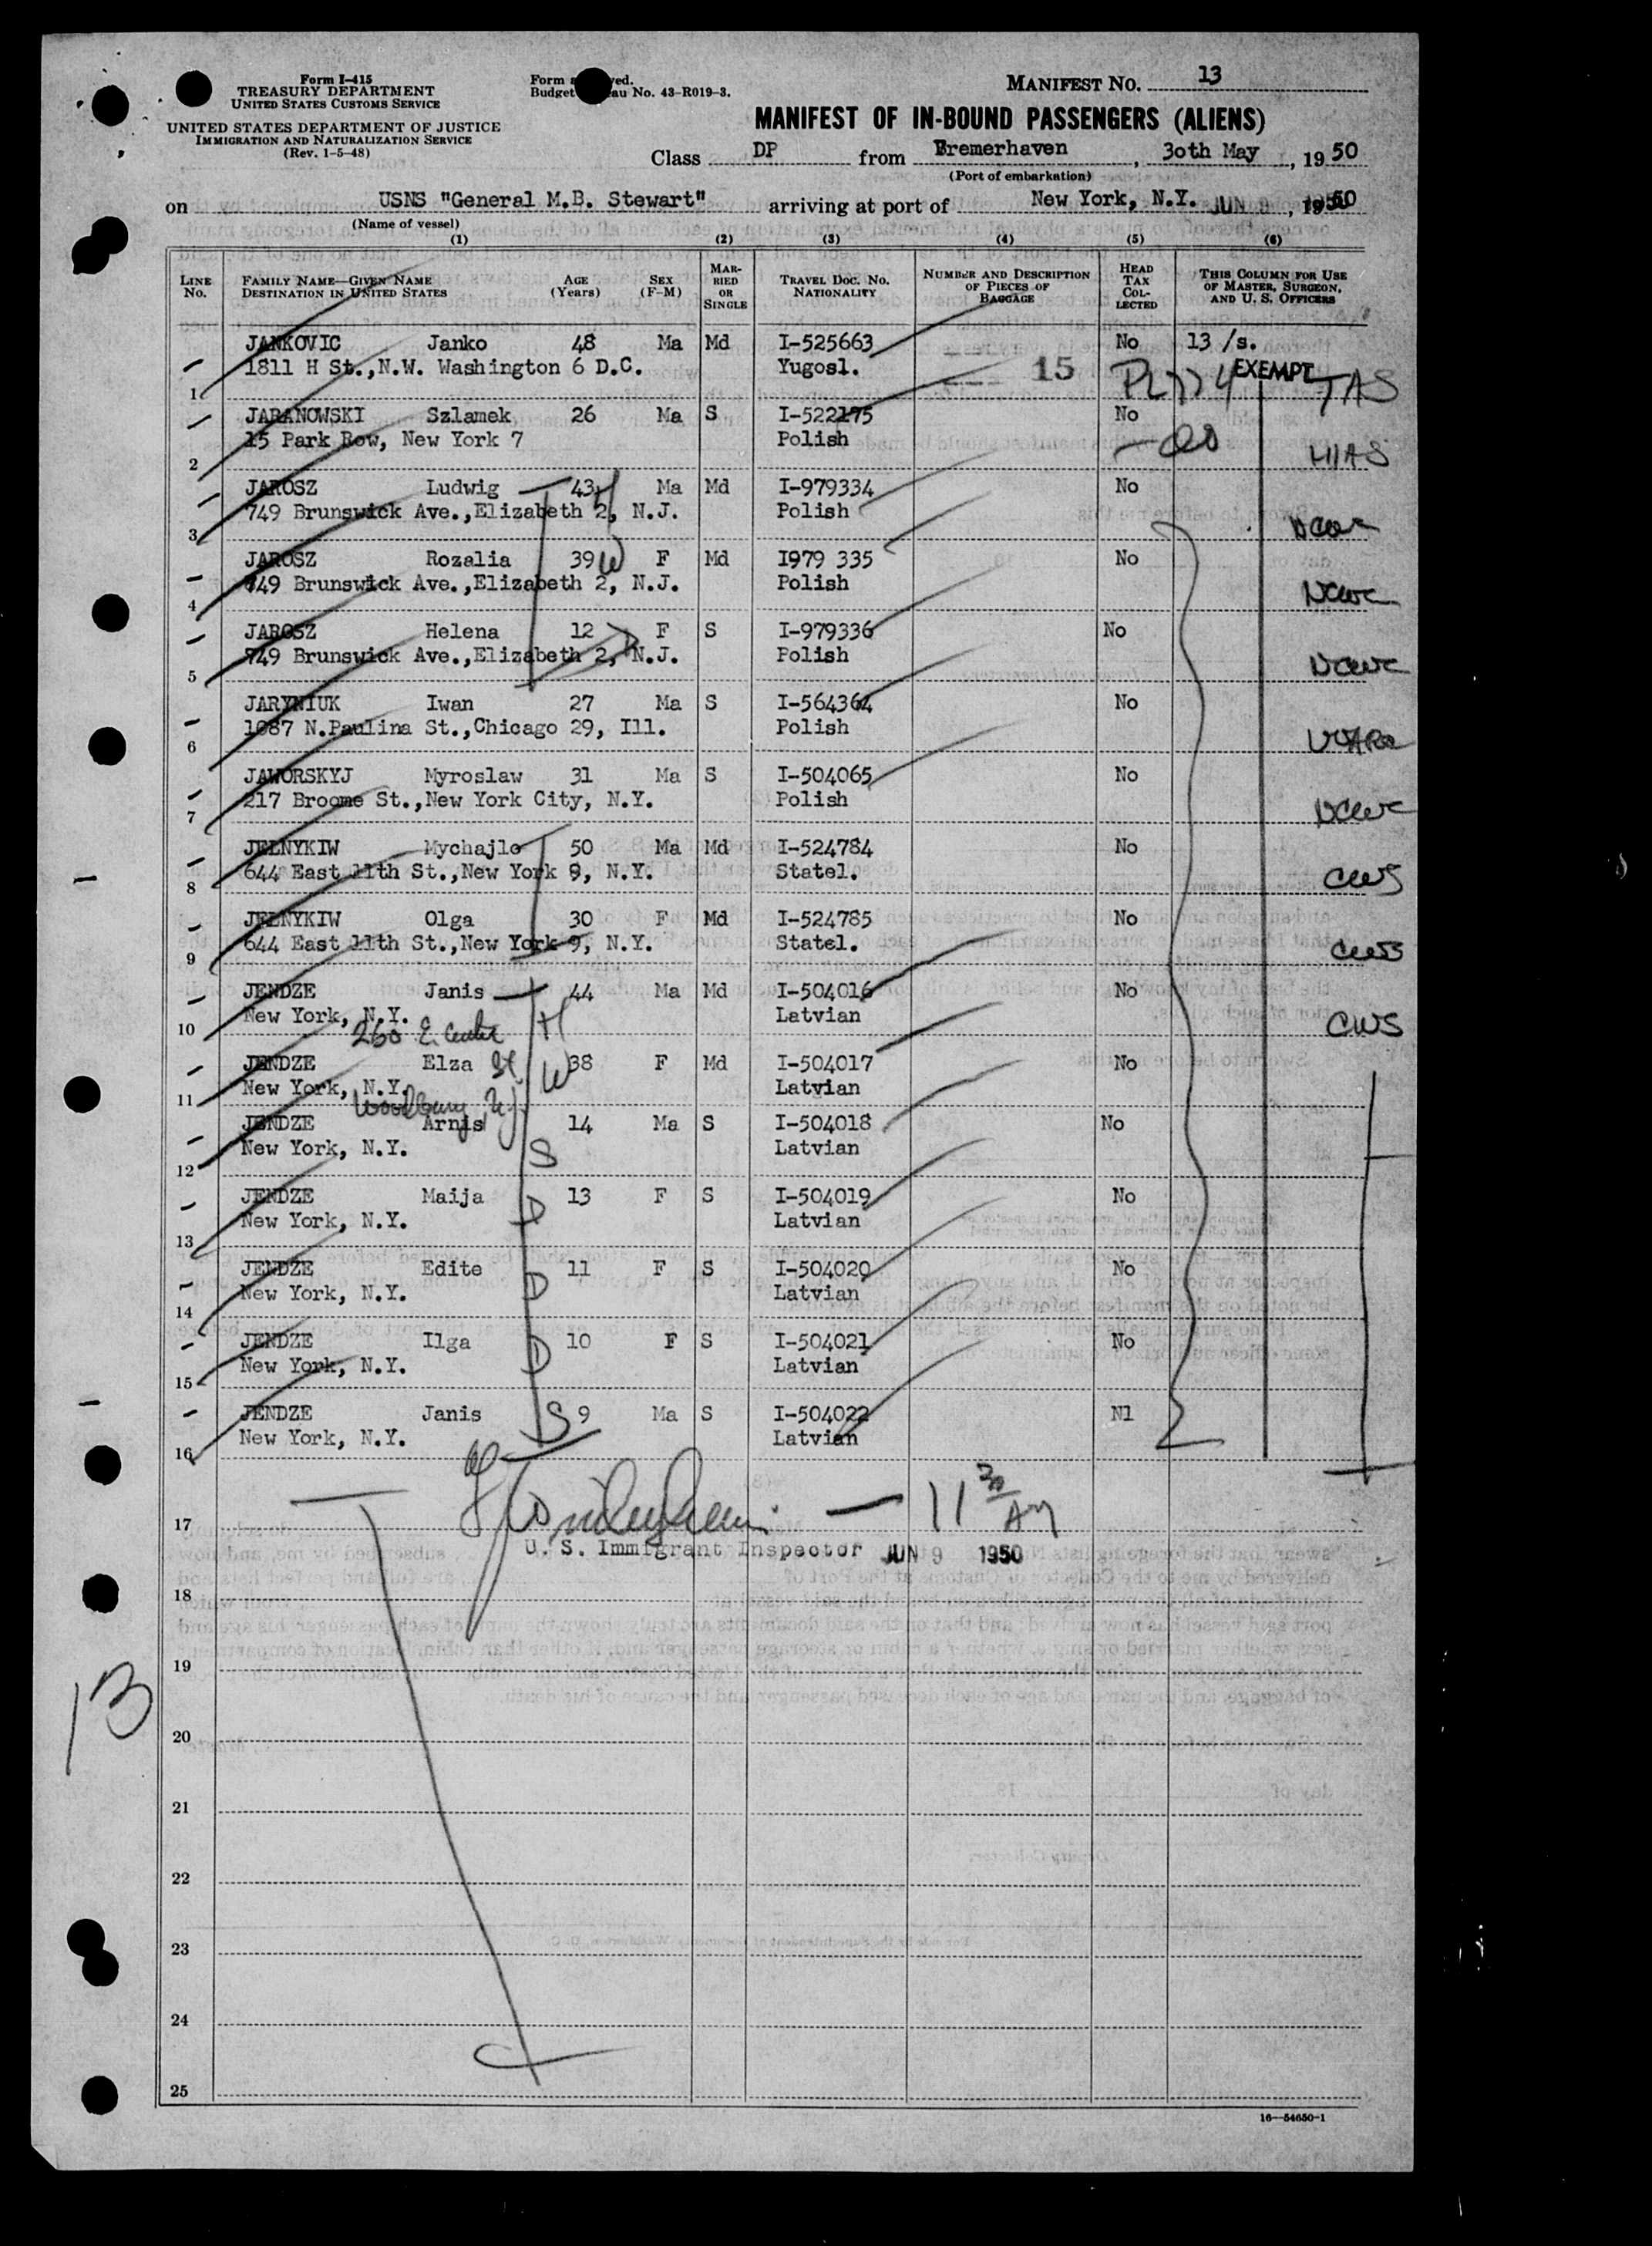 Form I-415
TREASURY DEPARTMENT
UNITED STATES CUSTOMS SERVICE
UNITED STATES DEPARTMENT OF JUSTICE
IMMIGRATION AND NATURALIZATION SERVICE
(Rev. 1-5-48)
Form
Budget No. 43-R019-3.
MANIFEST NO. 13
MANIFEST OF IN-BOUND PASSENGERS (ALIENS)
Class DP from Bremerhaven, 30th May, 1950
(Port of embarkation)
on USNS "General M.B. Stewart" arriving at port of New York, N.Y. JUN 9, 1950
(Name of vessel)
(1) (2) (3) (4) (5) (6)
LINE NO. FAMILY NAME—GIVEN NAME DESTINATION IN UNITED STATES AGE (Years) SEX (F-M) MARRIED OR SINGLE TRAVEL DOC. NO. NATIONALITY NUMBER AND DESCRIPTION OF PIECES OF BAGGAGE HEAD TAX COLLECTED THIS COLUMN FOR USE OF MASTER, SURGEON, AND U. S. OFFICERS
JANKOVIC Janko 48 Ma Md I-525663 No 13 /s.
1 1811 H St.,N.W. Washington 6 D.C. Yugosl. 15 PL 774 EXEMPT
JARANOWSKI Szlamek 26 Ma S I-522175 No
2 15 Park Row, New York 7 Polish HIAS
JAROSZ Ludwig 43 H Ma Md I-979334 No
3 749 Brunswick Ave.,Elizabeth 2, N.J. Polish NCWC
JAROSZ Rozalia 39 W F Md I979 335 No
4 749 Brunswick Ave.,Elizabeth 2, N.J. Polish NCWC
JAROSZ Helena 12 D F S I-979336 No
5 749 Brunswick Ave.,Elizabeth 2, N.J. Polish NCWC
JARYNIUK Iwan 27 Ma S I-564364 No
6 1087 N.Paulina St.,Chicago 29, Ill. Polish
JAWORSKYJ Myroslaw 31 Ma S I-504065 No
7 217 Broome St.,New York City, N.Y. Polish NCWC
JELNYKIW Mychajlo 50 Ma Md I-524784 No
8 644 East 11th St.,New York 9, N.Y. Statel. CWS
JELNYKIW Olga 30 F Md I-524785 No
9 644 East 11th St.,New York 9, N.Y. Statel. CWS
JENDZE Janis 44 Ma Md I-504016 No
10 New York, N.Y. H Latvian CWS
260 E. Center
JENDZE Elza St. W 38 F Md I-504017 No
11 New York, N.Y. Latvian
Woodbury N.J.
JENDZE Arnis 14 Ma S I-504018 No
12 New York, N.Y. S Latvian
JENDZE Maija 13 F S I-504019 No
13 New York, N.Y. D Latvian
JENDZE Edite 11 F S I-504020 No
14 New York, N.Y. D Latvian
JENDZE Ilga 10 F S I-504021 No
15 New York, N.Y. D Latvian
JENDZE Janis S 9 Ma S I-504022 Nl
16 New York, N.Y. Latvian
17 — 11 30 AM
U. S. Immigrant Inspector JUN 9 1950
18
19
13
20
21
22
23
24
25
16—54650-1